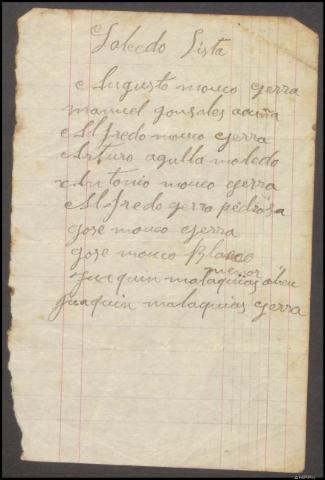 Saledo Lista
Augusto mouco gerra
manuel gonsales acuña
Alfredo mouco gerra
Arturo agulla moledo
x Antonio mouco gerra
Alfredo gerra pedrosa
gose mouco gerra
gose mouco Blanco
menor
Juaquin malaquias
Juaquin malaquias gerra